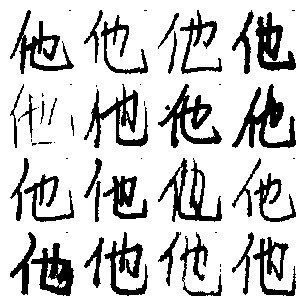 他他他他
他他他他
他他他他
他他他他